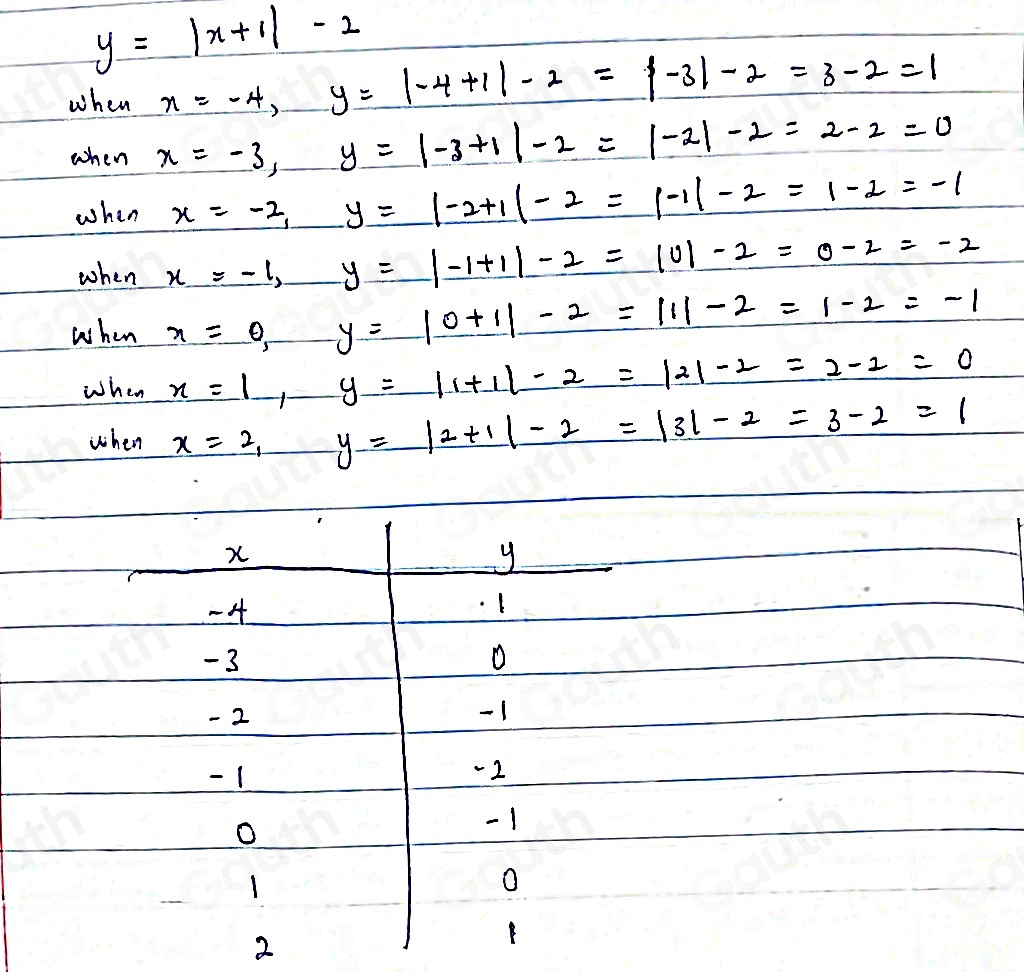 y = |x+1| - 2
when x = -4, y = |-4+1| - 2 = |-3| - 2 = 3-2 = 1
when x = -3, y = |-3+1| - 2 = |-2| - 2 = 2-2 = 0
when x = -2, y = |-2+1| - 2 = |-1| - 2 = 1-2 = -1
when x = -1, y = |-1+1| - 2 = |0| - 2 = 0-2 = -2
when x = 0, y = |0+1| - 2 = |1| - 2 = 1-2 = -1
when x = 1, y = |1+1| - 2 = |2| - 2 = 2-2 = 0
when x = 2, y = |2+1| - 2 = |3| - 2 = 3-2 = 1
x y
-4 1
-3 0
-2 -1
-1 -2
0 -1
1 0
2 1